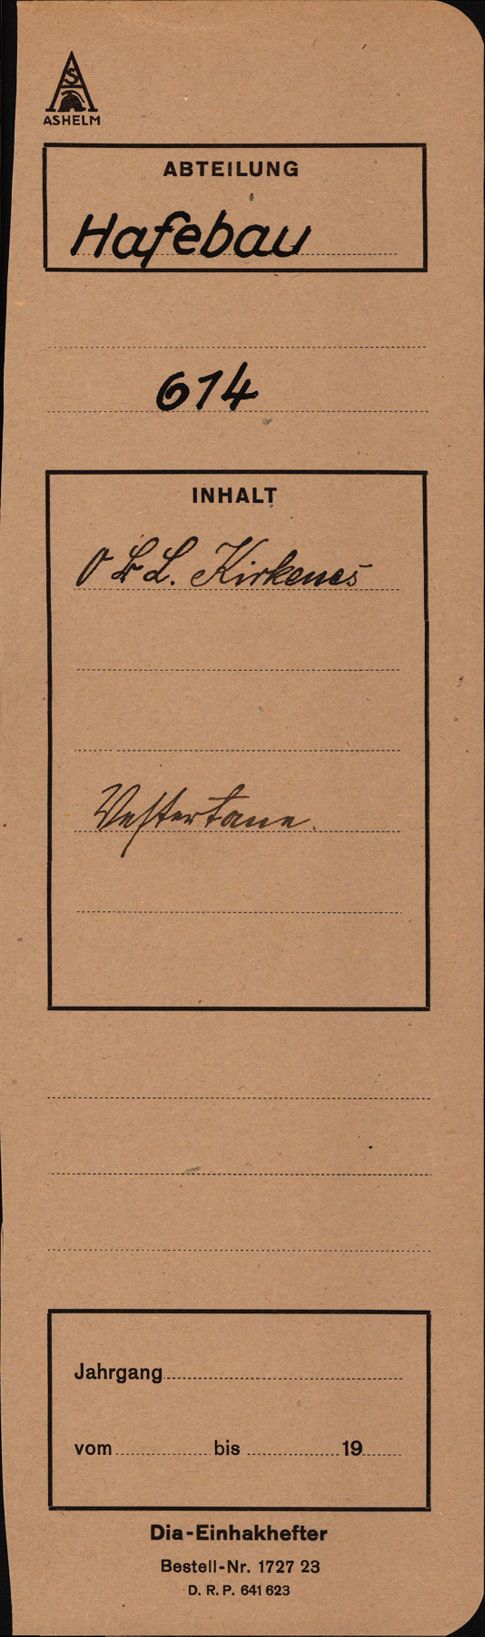 ASHELM
ABTEILUNG
Hafebau
614
INHALT
O B L. Kirkenes
Vestertana.
Jahrgang
vom bis 19
Dia-Einhakhefter
Bestell-Nr. 1727 23
D. R. P. 641 623